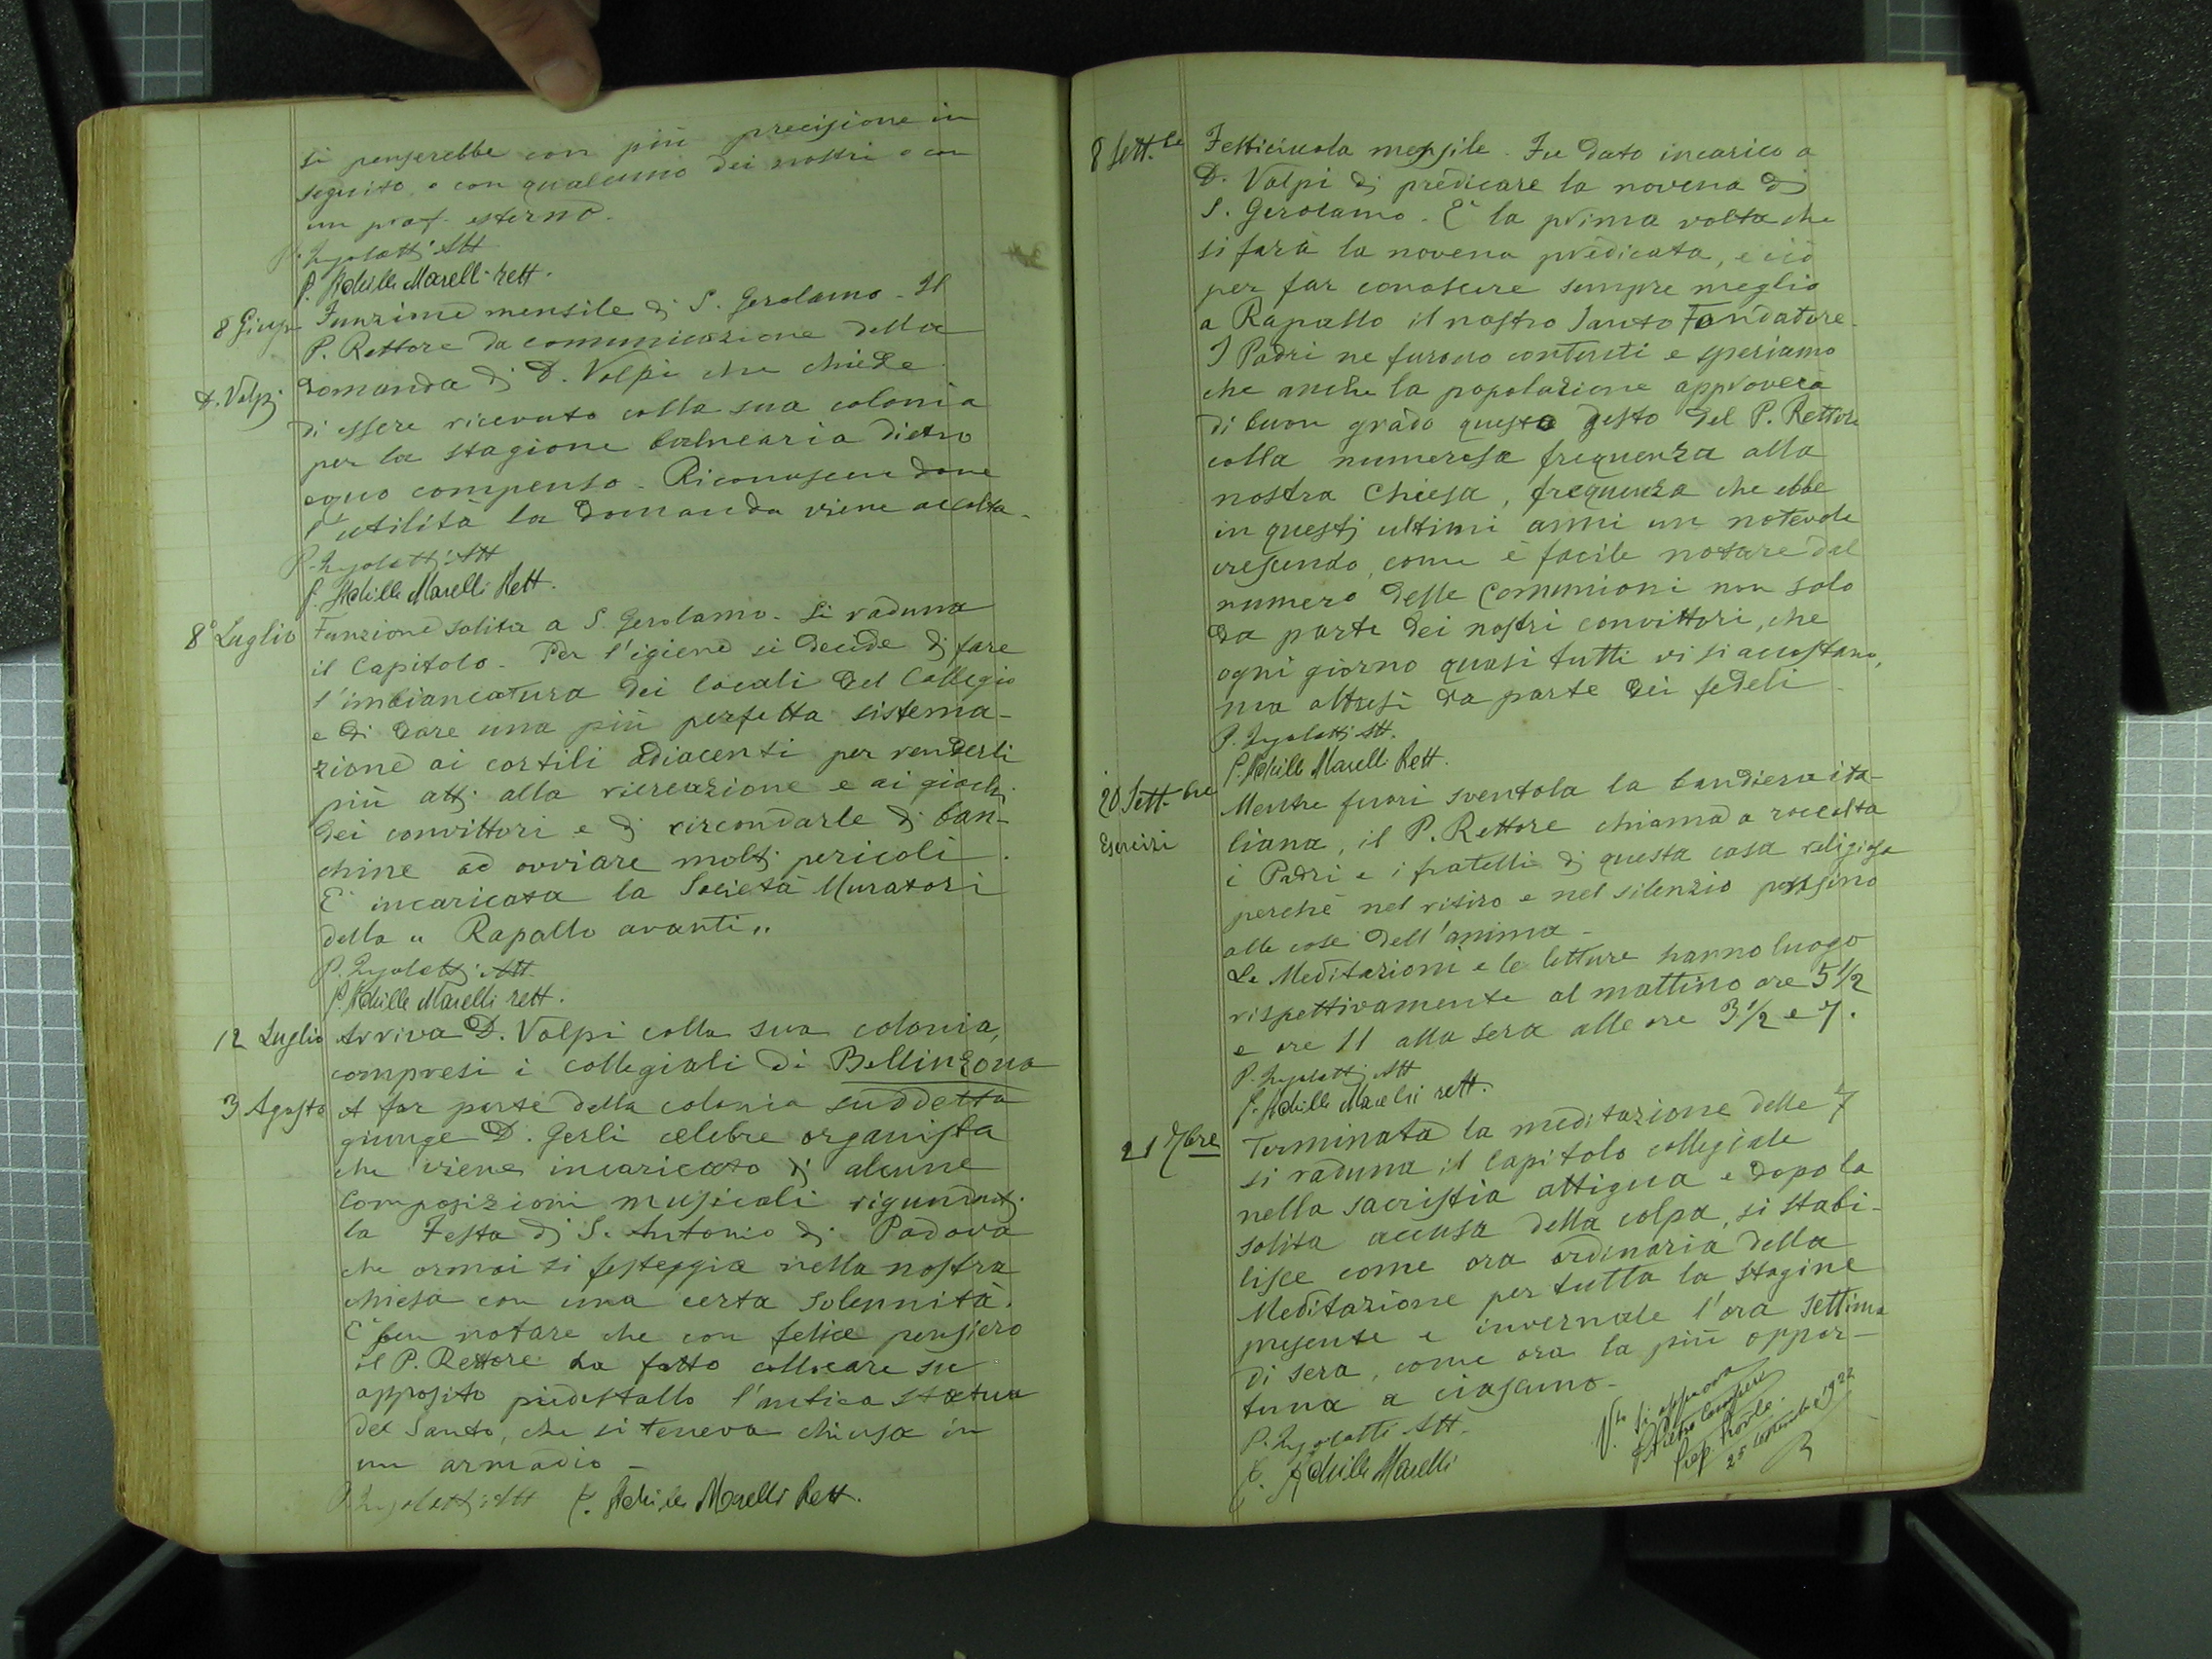 si penserebbe con più precisione in
seguito o con qualcuno dei nostri o con
un prof. esterno.
P. Zgoletti Att
P. Achille Marelli rett.
8 Giug. Funzione mensile di S. Gerolamo - Il
P. Rettore da comunicazione della
D. Volpi domanda di D. Volpi che chiede
di essere ricevuto colla sua colonia
per la stagione balnearia dietro
equo compenso - Riconoscendone
l'utilità la domanda viene accolta -
P. Zgoletti Att
P. Achille Marelli Rett.
8° Luglio Funzione solita a S. Gerolamo - Si raduna
il Capitolo - Per l'igiene si decide di fare
l'imbiancatura dei locali del Collegio
e di dare una più perfetta sistema-
zione ai cortili adiacenti per renderli
più atti alla ricreazione e ai giochi
dei convittori e di circondarle di ban-
chine ad ovviare molti pericoli.
E' incaricata la Società Muratori
della „ Rapallo avanti „
P. Zgoletti Att
P. Achille Marelli rett.
12 Luglio Arriva D. Volpi colla sua colonia,
compresi i collegiali di Bellinzona
3 Agosto A far parte della colonia suddetta
giunge D. Gerli celebre organista
che viene incaricato di alcune
composizioni musicali riguardanti
la Festa di S. Antonio di Padova
che ormai si festeggia nella nostra
chiesa con una certa solennità.
E' ben notare che con felice pensiero
il P. Rettore ha fatto collocare su
apposito piedestallo l'antica statua
del Santo, che si teneva chiusa in
un armadio -
P. Zgoletti Att P. Achille Marelli Rett.
8 Sett.bre Festicciuola mensile. Fu dato incarico a
D. Volpi di predicare la novena di
S. Gerolamo - E' la prima volta che
si farà la novena predicata, e ciò
per far conoscere sempre meglio
a Rapallo il nostro Santo Fondatore -
I Padri ne furono contenti e speriamo
che anche la popolazione approverà
di buon grado questo gesto del P. Rettore
colla numerosa frequenza alla
nostra Chiesa, frequenza che ebbe
in questi ultimi anni un notevole
crescendo, come è facile notare dal
numero delle Comunioni non solo
da parte dei nostri convittori, che
ogni giorno quasi tutti vi si accostano,
ma altresì da parte dei fedeli -
P. Zgoletti Att.
P. Achille Marelli Rett.
20 Sett.bre Mentre fuori sventola la bandiera ita-
Esercizi liana, il P. Rettore chiama a raccolta
i Padri e i fratelli di questa casa religiosa
perché nel ritiro e nel silenzio pensino
alle cose dell'anima -
Le Meditazioni e le letture hanno luogo
rispettivamente al mattino ore 5 1/2
e ore 11 alla sera alle ore 3 1/2 e 7.
P. Zgoletti Att
P. Achille Marelli rett.
21 7bre Terminata la meditazione delle 7
si raduna il Capitolo collegiale
nella sacristia attigua e dopo la
solita accusa della colpa, si stabi-
lisce come ora ordinaria della
Meditazione per tutta la stagine
presente e invernale l'ora settima
di sera, come ora la più oppor-
tuna a ciascuno -
P. Zgoletti Att.
P. Achille Marelli
V.to si approva
P. Pietro
Prep. Prov.le
25 Settembre 1922